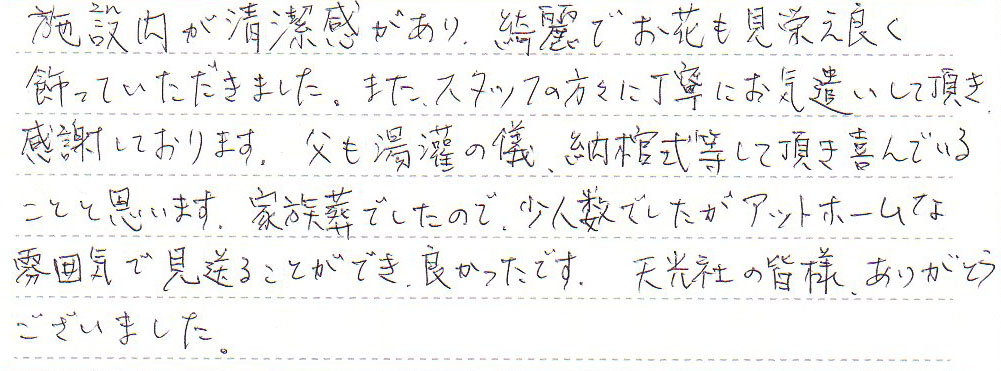 施設内が清潔感があり、綺麗でお花も見栄え良く
飾っていただきました。また、スタッフの方々に丁寧にお気遣いして頂き、
感謝しております。父も湯灌の儀、納棺式等して頂き喜んでいる
ことと思います。家族葬でしたので、少人数でしたがアットホームな
雰囲気で見送ることができ、良かったです。 天光社の皆様、ありがとう
ございました。